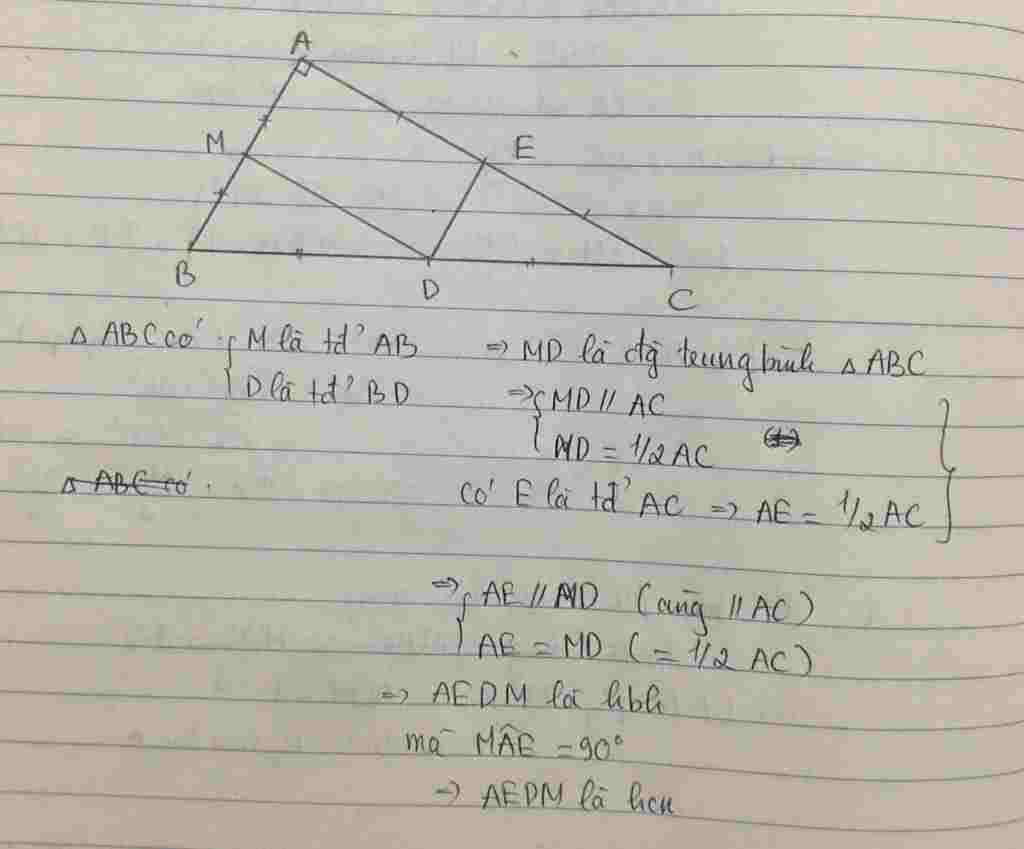 A
M
E
B
D
C
Δ ABC có { M là tđ' AB => MD là đg trung bình Δ ABC
D là tđ' BD => { MD // AC
MD = 1/2 AC
Δ ABC có
có E là tđ' AC => AE = 1/2 AC }
=> { AE // MD (cùng // AC)
AE = MD (= 1/2 AC)
=> AEDM là hbh
mà MÂE = 90°
-> AEDM là hcn